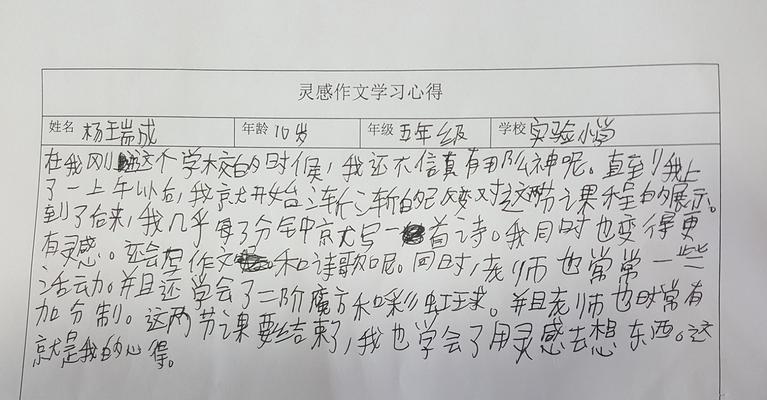 灵感作文学习心得
姓名 杨瑞成 年龄 10岁 年级 五年级 学校 实验小学
在我刚这个学校的时候，我还不信真有那么神呢。直到我上
了一上午以后，我就开始渐渐的改变对这两节课程的展示。
到了后来，我几乎每3分钟就写一首诗。我同时也变得更
有灵感。还会写作文和诗歌呢。同时，老师也常常一些
活动。并且还学会了二阶魔方和彩虹球。并且老师也时常有
加分制。这两节课要结束了，我也学会了用灵感去想东西。这
就是我的心得。